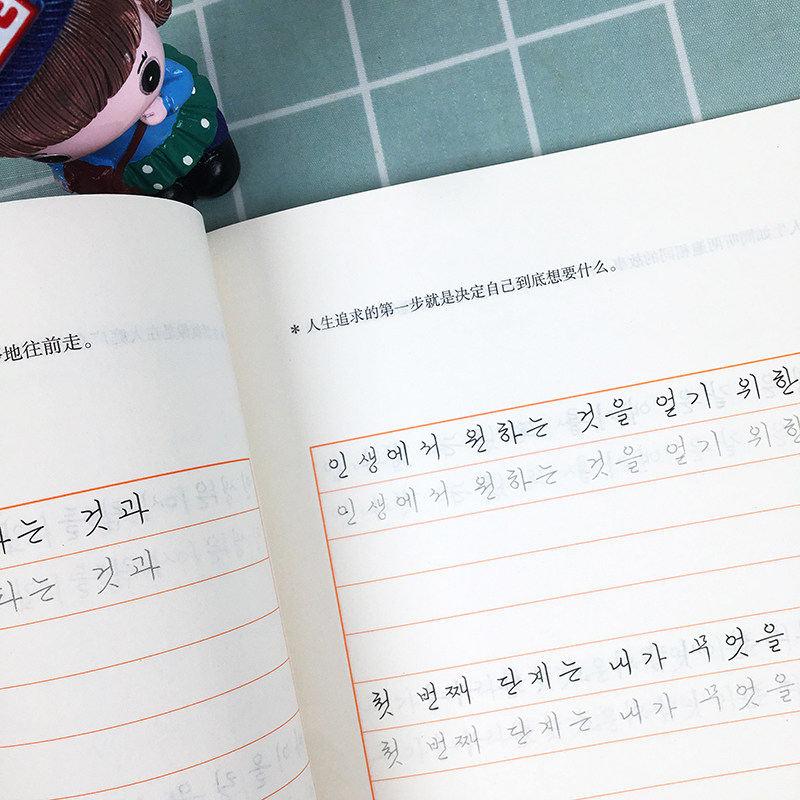 地往前走。
는 것과
는 것과
* 人生追求的第一步就是决定自己到底想要什么。
인생에서 원하는 것을 얻기 위한
인생에서 원하는 것을 얻기 위한
첫 번째 단계는 내가 무엇을
첫 번째 단계는 내가 무엇을